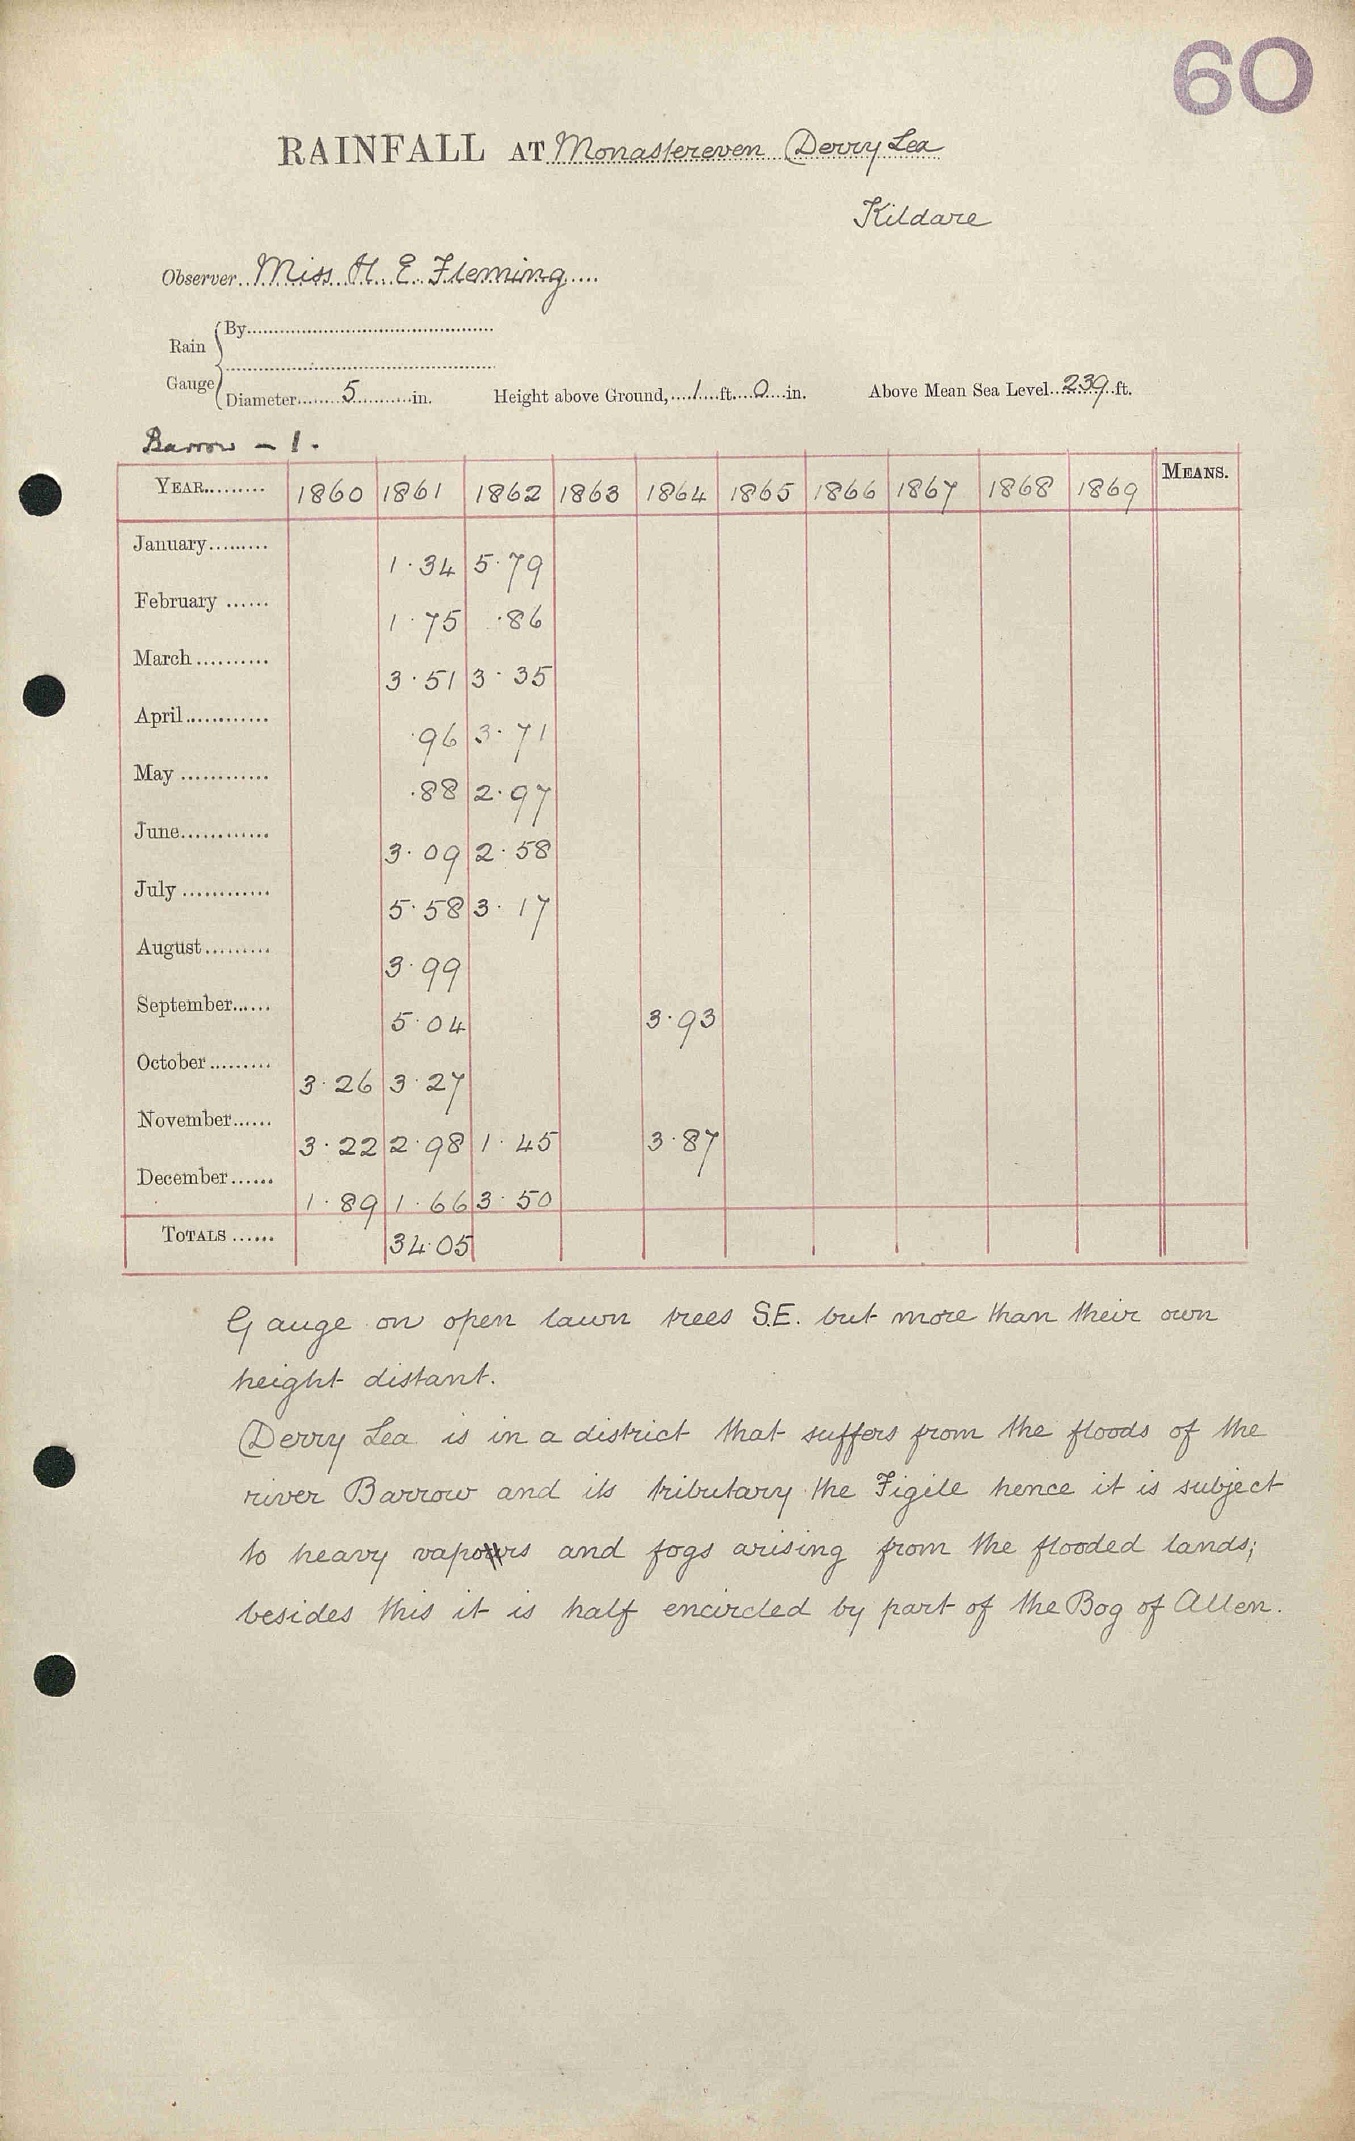 60
RAINFALL AT Monastereven Derry Lea
Kildare
Observer Miss H. E. Fleming
Rain Gauge
By
Diameter 5 in. Height above Ground, 1 ft. 0 in. Above Mean Sea Level 239 ft.
Barrow - 1.
YEAR 1860 1861 1862 1863 1864 1865 1866 1867 1868 1869 MEANS.
January 1.34 5.79
February 1.75 .86
March 3.51 3.35
April .96 3.71
May .88 2.97
June 3.09 2.58
July 5.58 3.17
August 3.99
September 5.04 3.93
October 3.26 3.27
November 3.22 2.98 1.45 3.87
December 1.89 1.66 3.50
TOTALS 34.05
Gauge on open lawn trees S.E. but more than their own
height distant.
Derry Lea is in a district that suffers from the floods of the
river Barrow and its tributary the Figile hence it is subject
to heavy vapours and fogs arising from the flooded lands;
besides this it is half encircled by part of the Bog of Allen.